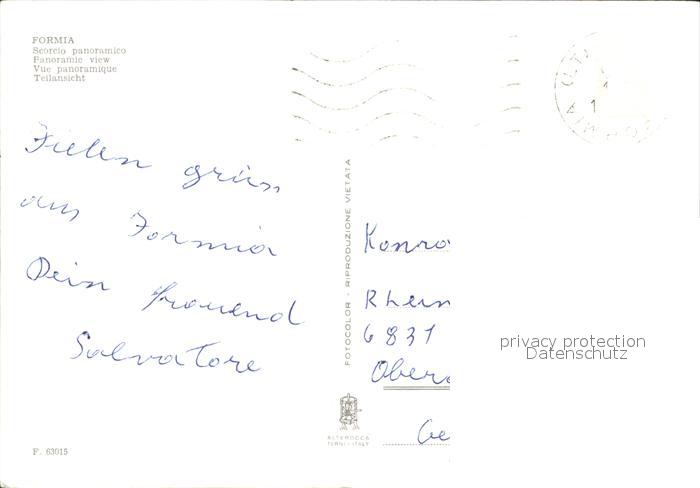 FORMIA
Scorcio panoramico
Panoramic view
Vue panoramique
Teilansicht
Fielen grüss
aus Formia
Dein frouend
Salvatore
FOTOCOLOR - RIPRODUZIONE VIETATA
Konra
Rhein
6831
Obera
Ge
privacy protection
Datenschutz
ALTEROCCA
TERNI - ITALY
F. 63015